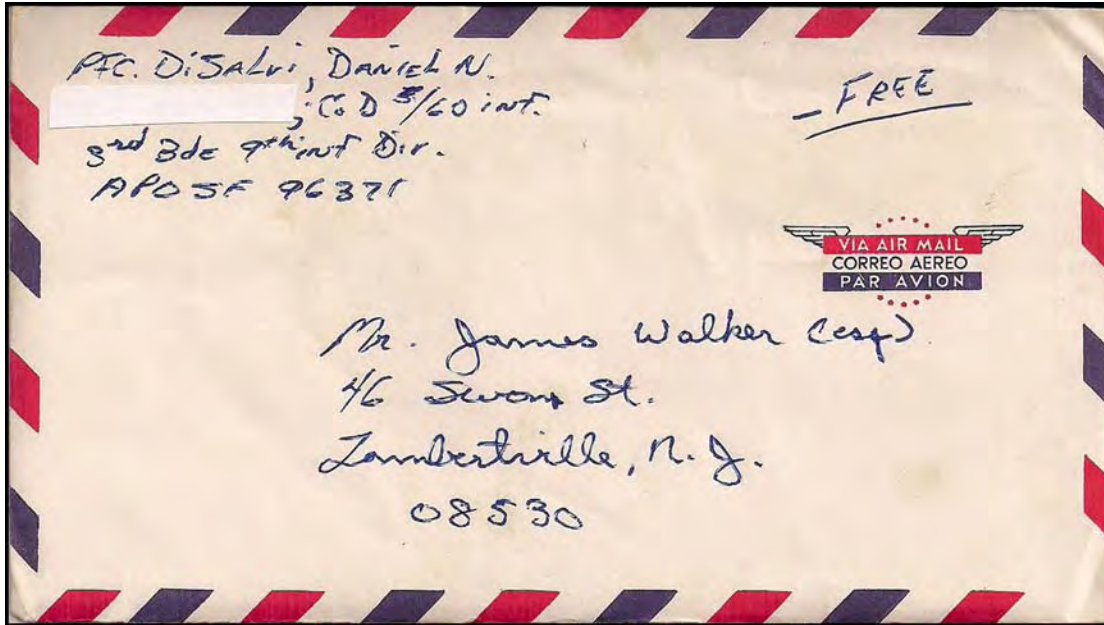 PFC. DiSALvi, DANIEL N.
; Co D 5/60 inf.
3rd Bde 9th inf Div.
APO SF 96371
FREE
VIA AIR MAIL
CORREO AEREO
PAR AVION
Mr. James Walker (esq)
46 Swan St.
Lambertville, N. J.
08530